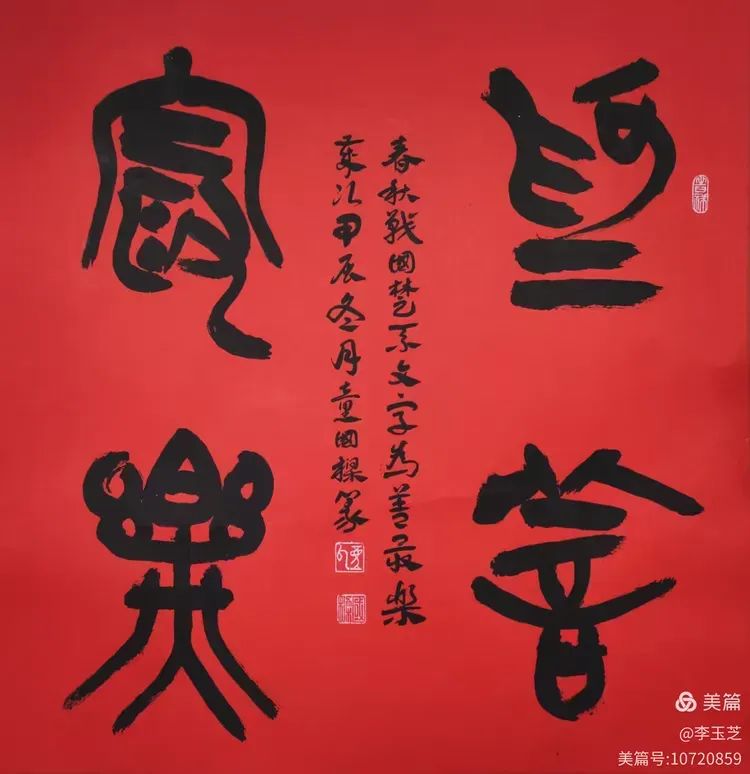 為善
最樂
春秋戰國楚系文字為善最樂
歲次甲辰冬月童國樑篆
美篇
@李玉芝
美篇号:10720859